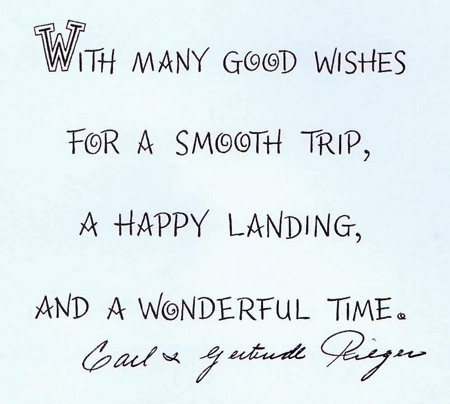 WITH MANY GOOD WISHES
FOR A SMOOTH TRIP,
A HAPPY LANDING,
AND A WONDERFUL TIME.
Carl & Gertrude Rieger